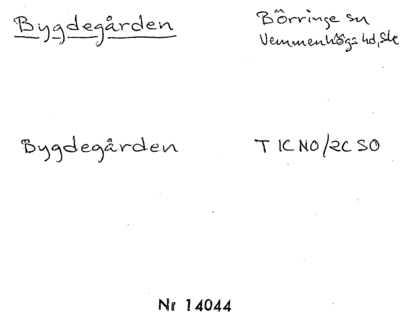 Bygdegården
Börringe sn
Vemmenhögs hd, Sk
Bygdegården
T 1C NO/2C SO
Nr 14044